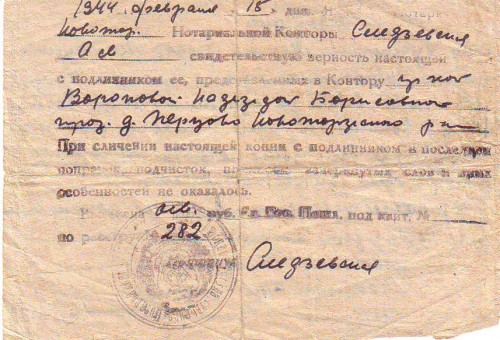 1944. февраля 18 дня. Я
Новотор. Нотариальной Конторы Следзевская
свидетельствую верность настоящей
с подлинником ее, представленных в Контору гр-кой
Вороновой Надеждой Борисовной
прож. д. Перцово Новоторжского р-на
При сличении настоящей копии с подлинником в последнем
поправок, подчисток, зачеркнутых слов и иных
особенностей не оказалось.
руб. Гос. Пошл. под квит. №
по реестру 282
Следзевская